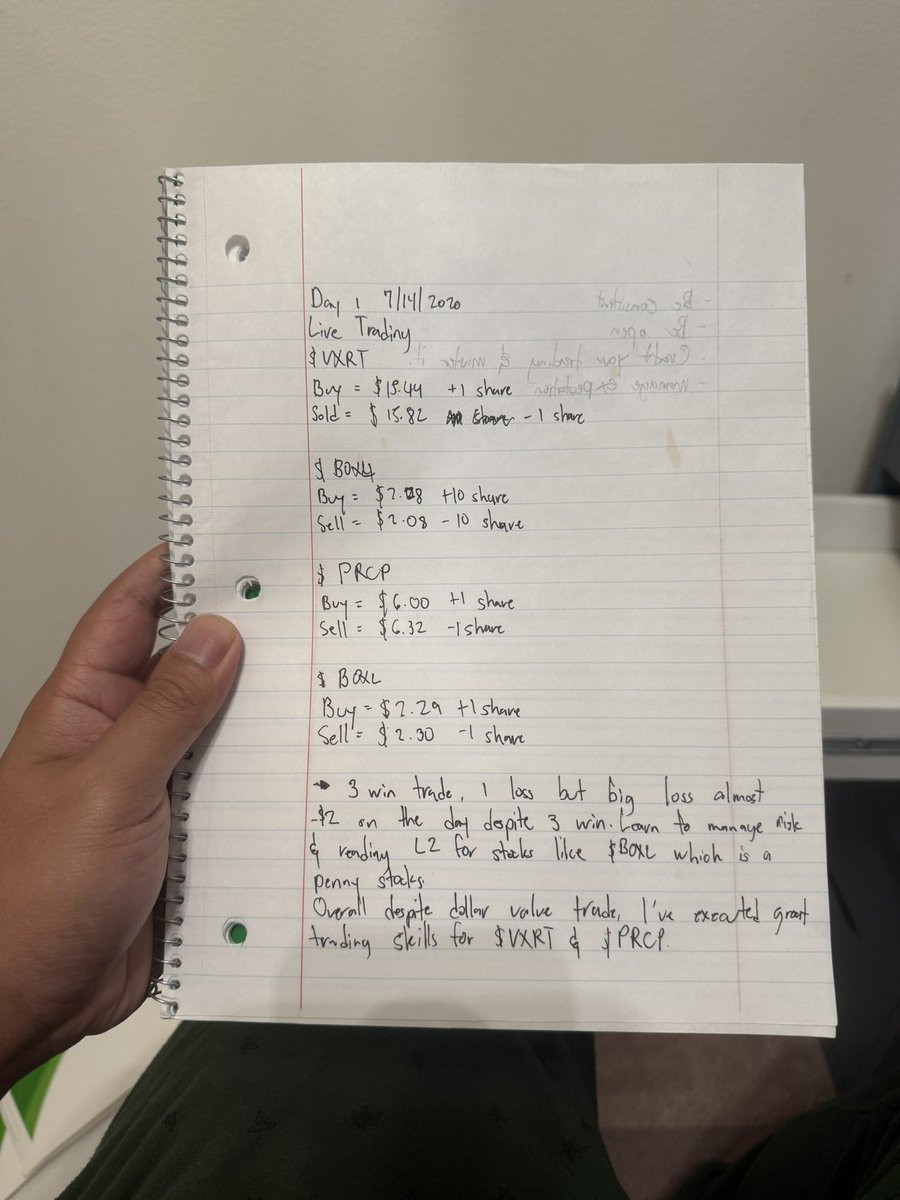 Day 1 7/14/2020
Live Trading
$VXRT
Buy = $15.44 +1 share
Sold = $15.82 share -1 share
$ BOXL
Buy = $2.28 +10 share
Sell = $2.08 -10 share
$ PRCP
Buy = $6.00 +1 share
Sell = $6.32 -1 share
$ BOXL
Buy = $2.29 +1 share
Sell = $2.30 -1 share
→ 3 win trade, 1 loss but big loss almost
-$2 on the day despite 3 win. Learn to manage risk
& reading L2 for stocks like $BOXL which is a
penny stocks.
Overall despite dollar value trade, I've executed great
trading skills for $VXRT & $PRCP.
- Be consistent
- Be open
- Credit your trading & master it.
- manage expectation